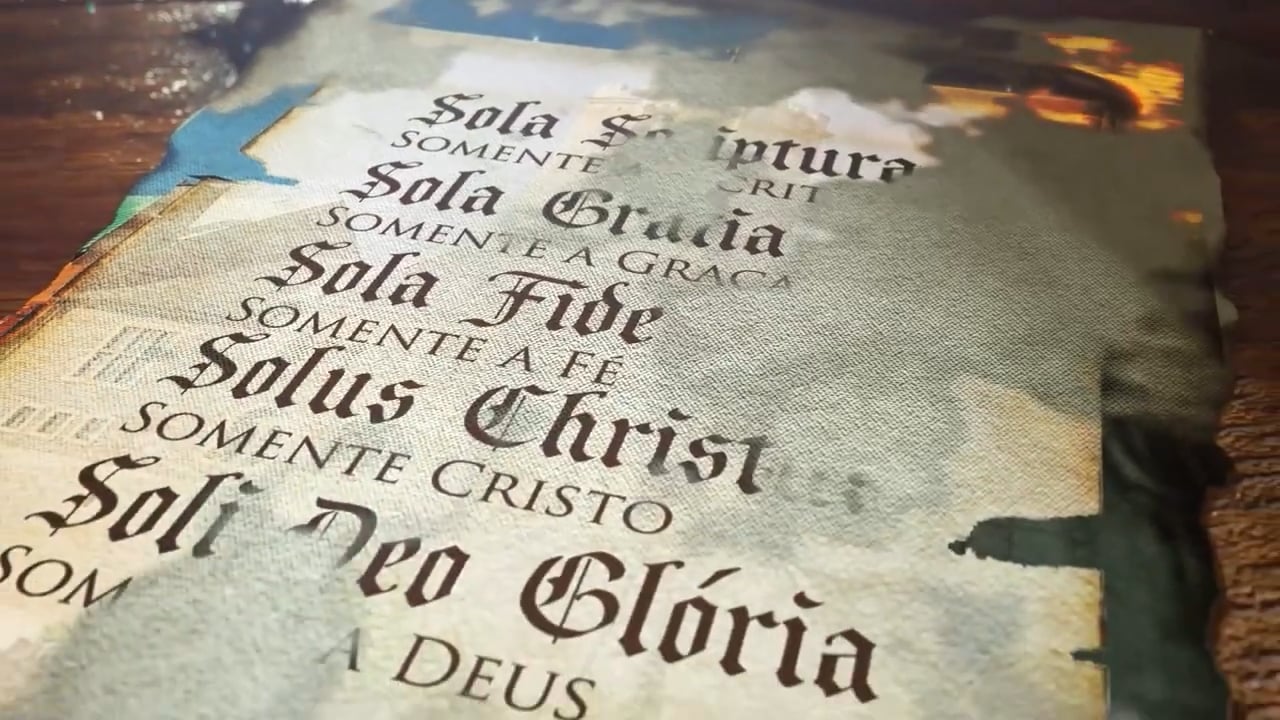 Sola
SOMENTE
Sola Gracia
SOMENTE A GRAÇA
Sola Fide
SOMENTE A FÉ
Solus Christus
SOMENTE CRISTO
Soli Deo Glória
A DEUS